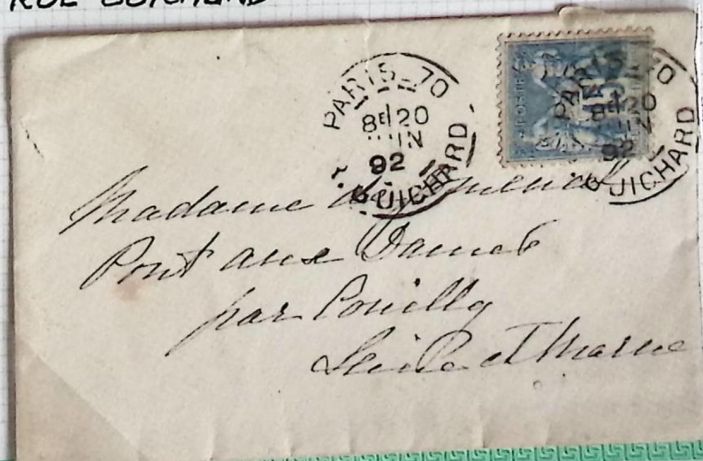 RUE GUICHARD
PARIS_70
8E 20
JUIN
92
R. GUICHARD
PARIS_70
8E 20
JUIN
92
GUICHARD
Madame de
Pont aux Dames
par Couilly
Seine et Marne